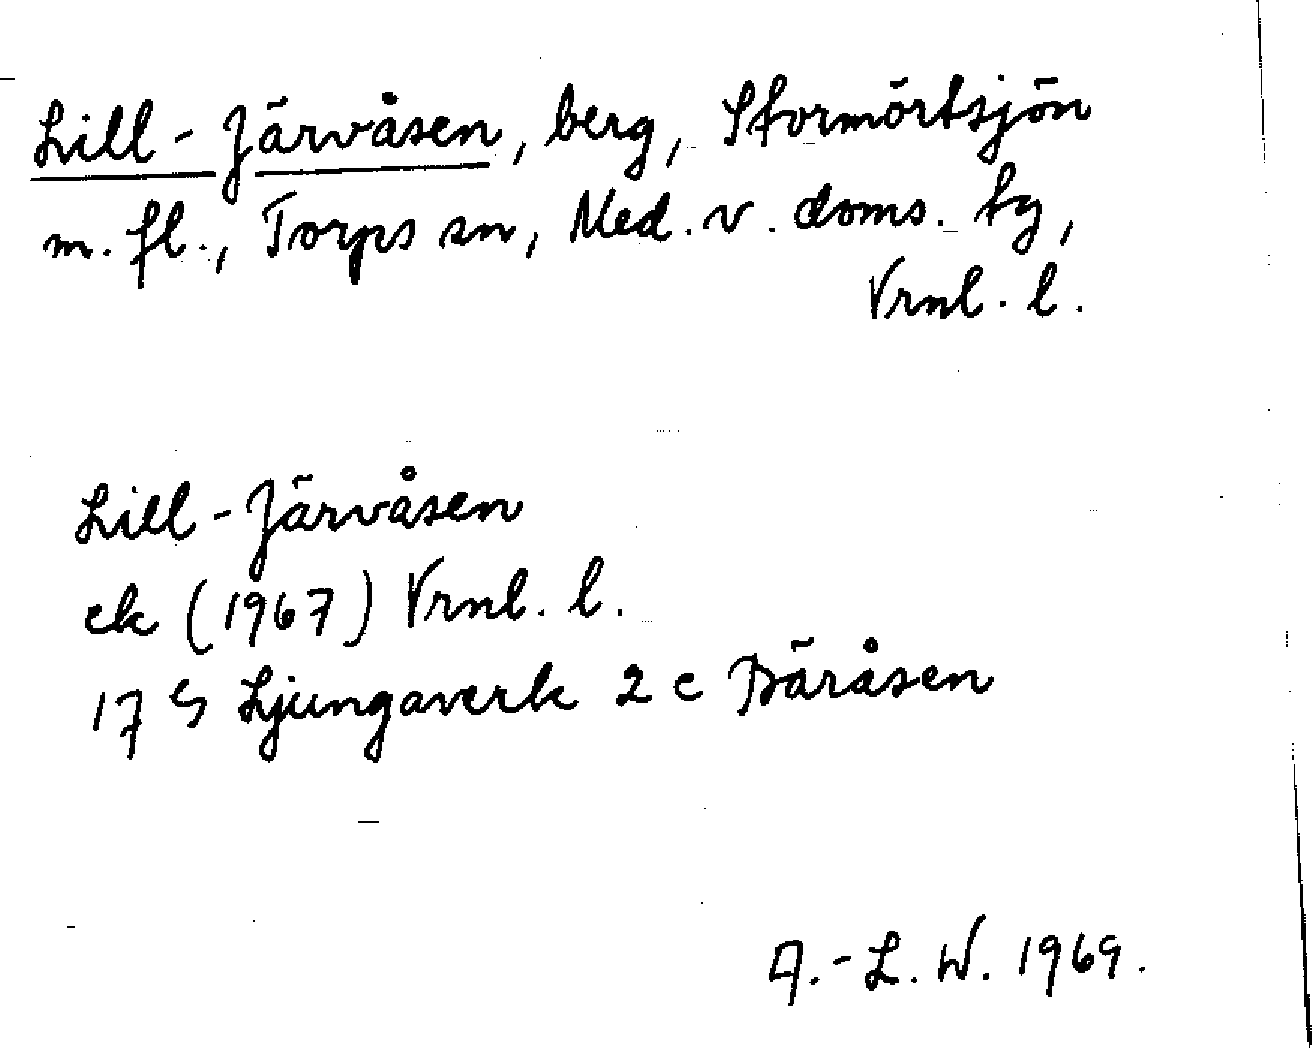 Lill-Järvåsen, berg, Stormörtsjön
m. fl., Torps sn, Med. v. doms. tg,
Vrnl. l.
Lill-Järvåsen
ek (1967) Vrnl. l.
17 G Ljungaverk 2 c Bäråsen
A.-L. W. 1969.